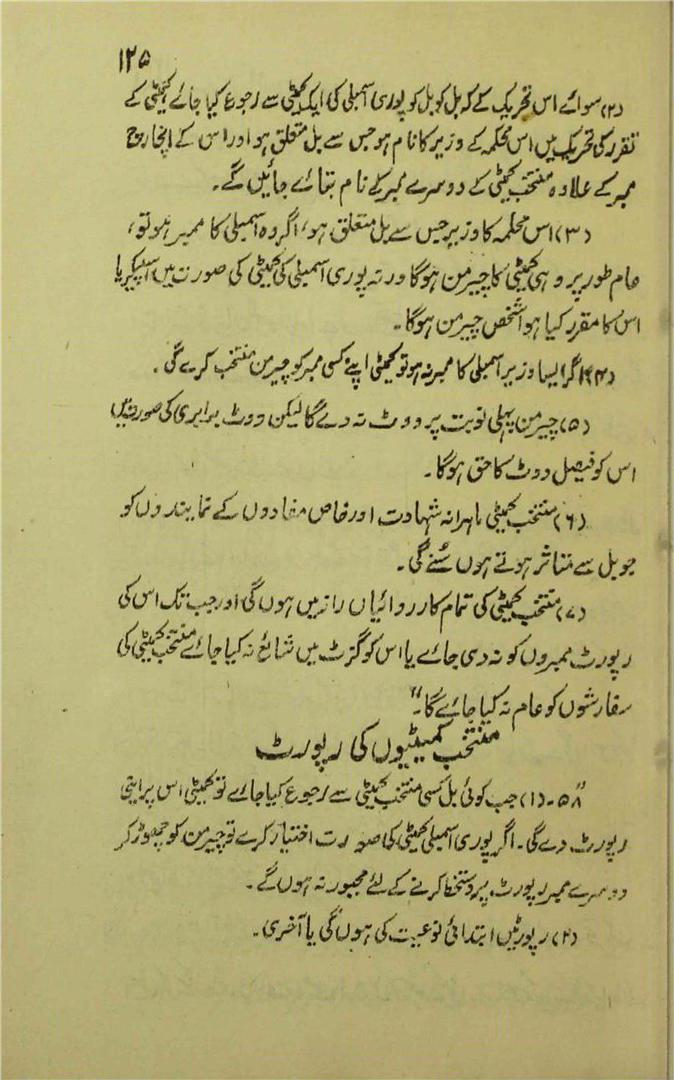 ۱۲۵
(۲) سوائے اس تحریک کے کہ بل کو بل کو پوری اسمبلی کی ایک کمیٹی سے رجوع کیا جائے کمیٹی کے
تقرر کی تحریک میں اس محکمہ کے وزیر کا نام ہو جس سے بل متعلق ہو اور اس کے انچارج
ممبر کے علاوہ منتخب کمیٹی کے دوسرے ممبر کے نام بتاے جائیں گے۔
(۳) اس محکمہ کا وزیر جس سے بل متعلق ہو، اگر وہ اسمبلی کا ممبر ہو تو،
عام طور پر وہی کمیٹی کا چیرمن ہوگا ورنہ پوری اسمبلی کی کمیٹی کی صورت میں اسپیکر یا
اس کا مقرر کیا ہوا شخص چیرمن ہوگا۔
(۴) اگر ایسا وزیر اسمبلی کا ممبر نہ ہو تو کمیٹی اپنے کسی ممبر کو چیرمن منتخب کرے گی۔
(۵) چیرمن پہلی نوبت پر ووٹ نہ دے گا لیکن ووٹ برابری کی صورت میں
اس کو فیصل ووٹ کا حق ہوگا۔
(۶) منتخب کمیٹی ماہرانہ شہادت اور خاص مفادوں کے نمایندوں کو
جو بل سے متاثر ہوتے ہوں سُنے گی۔
(۷) منتخب کمیٹی کی تمام کارروائیاں راز میں ہوں گی اور جب تک اس کی
رپورٹ ممبروں کو نہ دی جاے یا اس کو گزٹ میں شائع نہ کیا جاے منتخب کمیٹی کی
سفارشوں کو عام نہ کیا جاے گا۔"
منتخب کمیٹیوں کی رپورٹ
"۵۸۔ (۱) جب کوئی بل کسی منتخب کمیٹی سے رجوع کیا جاے تو کمیٹی اس پر اپنی
رپورٹ دے گی۔ اگر پوری اسمبلی کمیٹی کی صورت اختیار کرے تو چیرمن کو چھوڑ کر
دوسرے ممبر رپورٹ پر دستخط کرنے کے لئے مجبور نہ ہوں گے۔
(۲) رپورٹیں ابتدائی نوعیت کی ہوں گی یا آخری۔